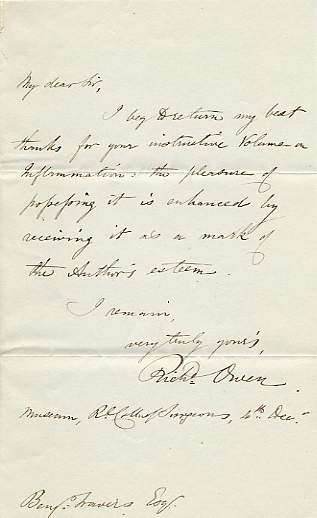 My dear Sir,
I beg to return my best
thanks for your instructive Volume on
Inflammation: the pleasure of
possessing it is enhanced by
receiving it as a mark of
the Author's esteem.
I remain,
very truly your's,
Richd. Owen
Museum, Rl. Coll. of Surgeons, 4th Decr.
Benjn. Travers Esqr.